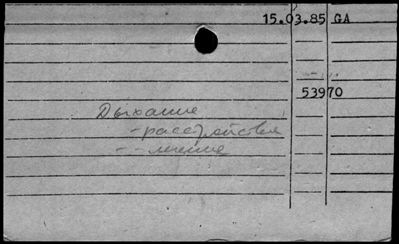 15.03.85 GA
53970
Дыхание
-расстройства
- -лечение